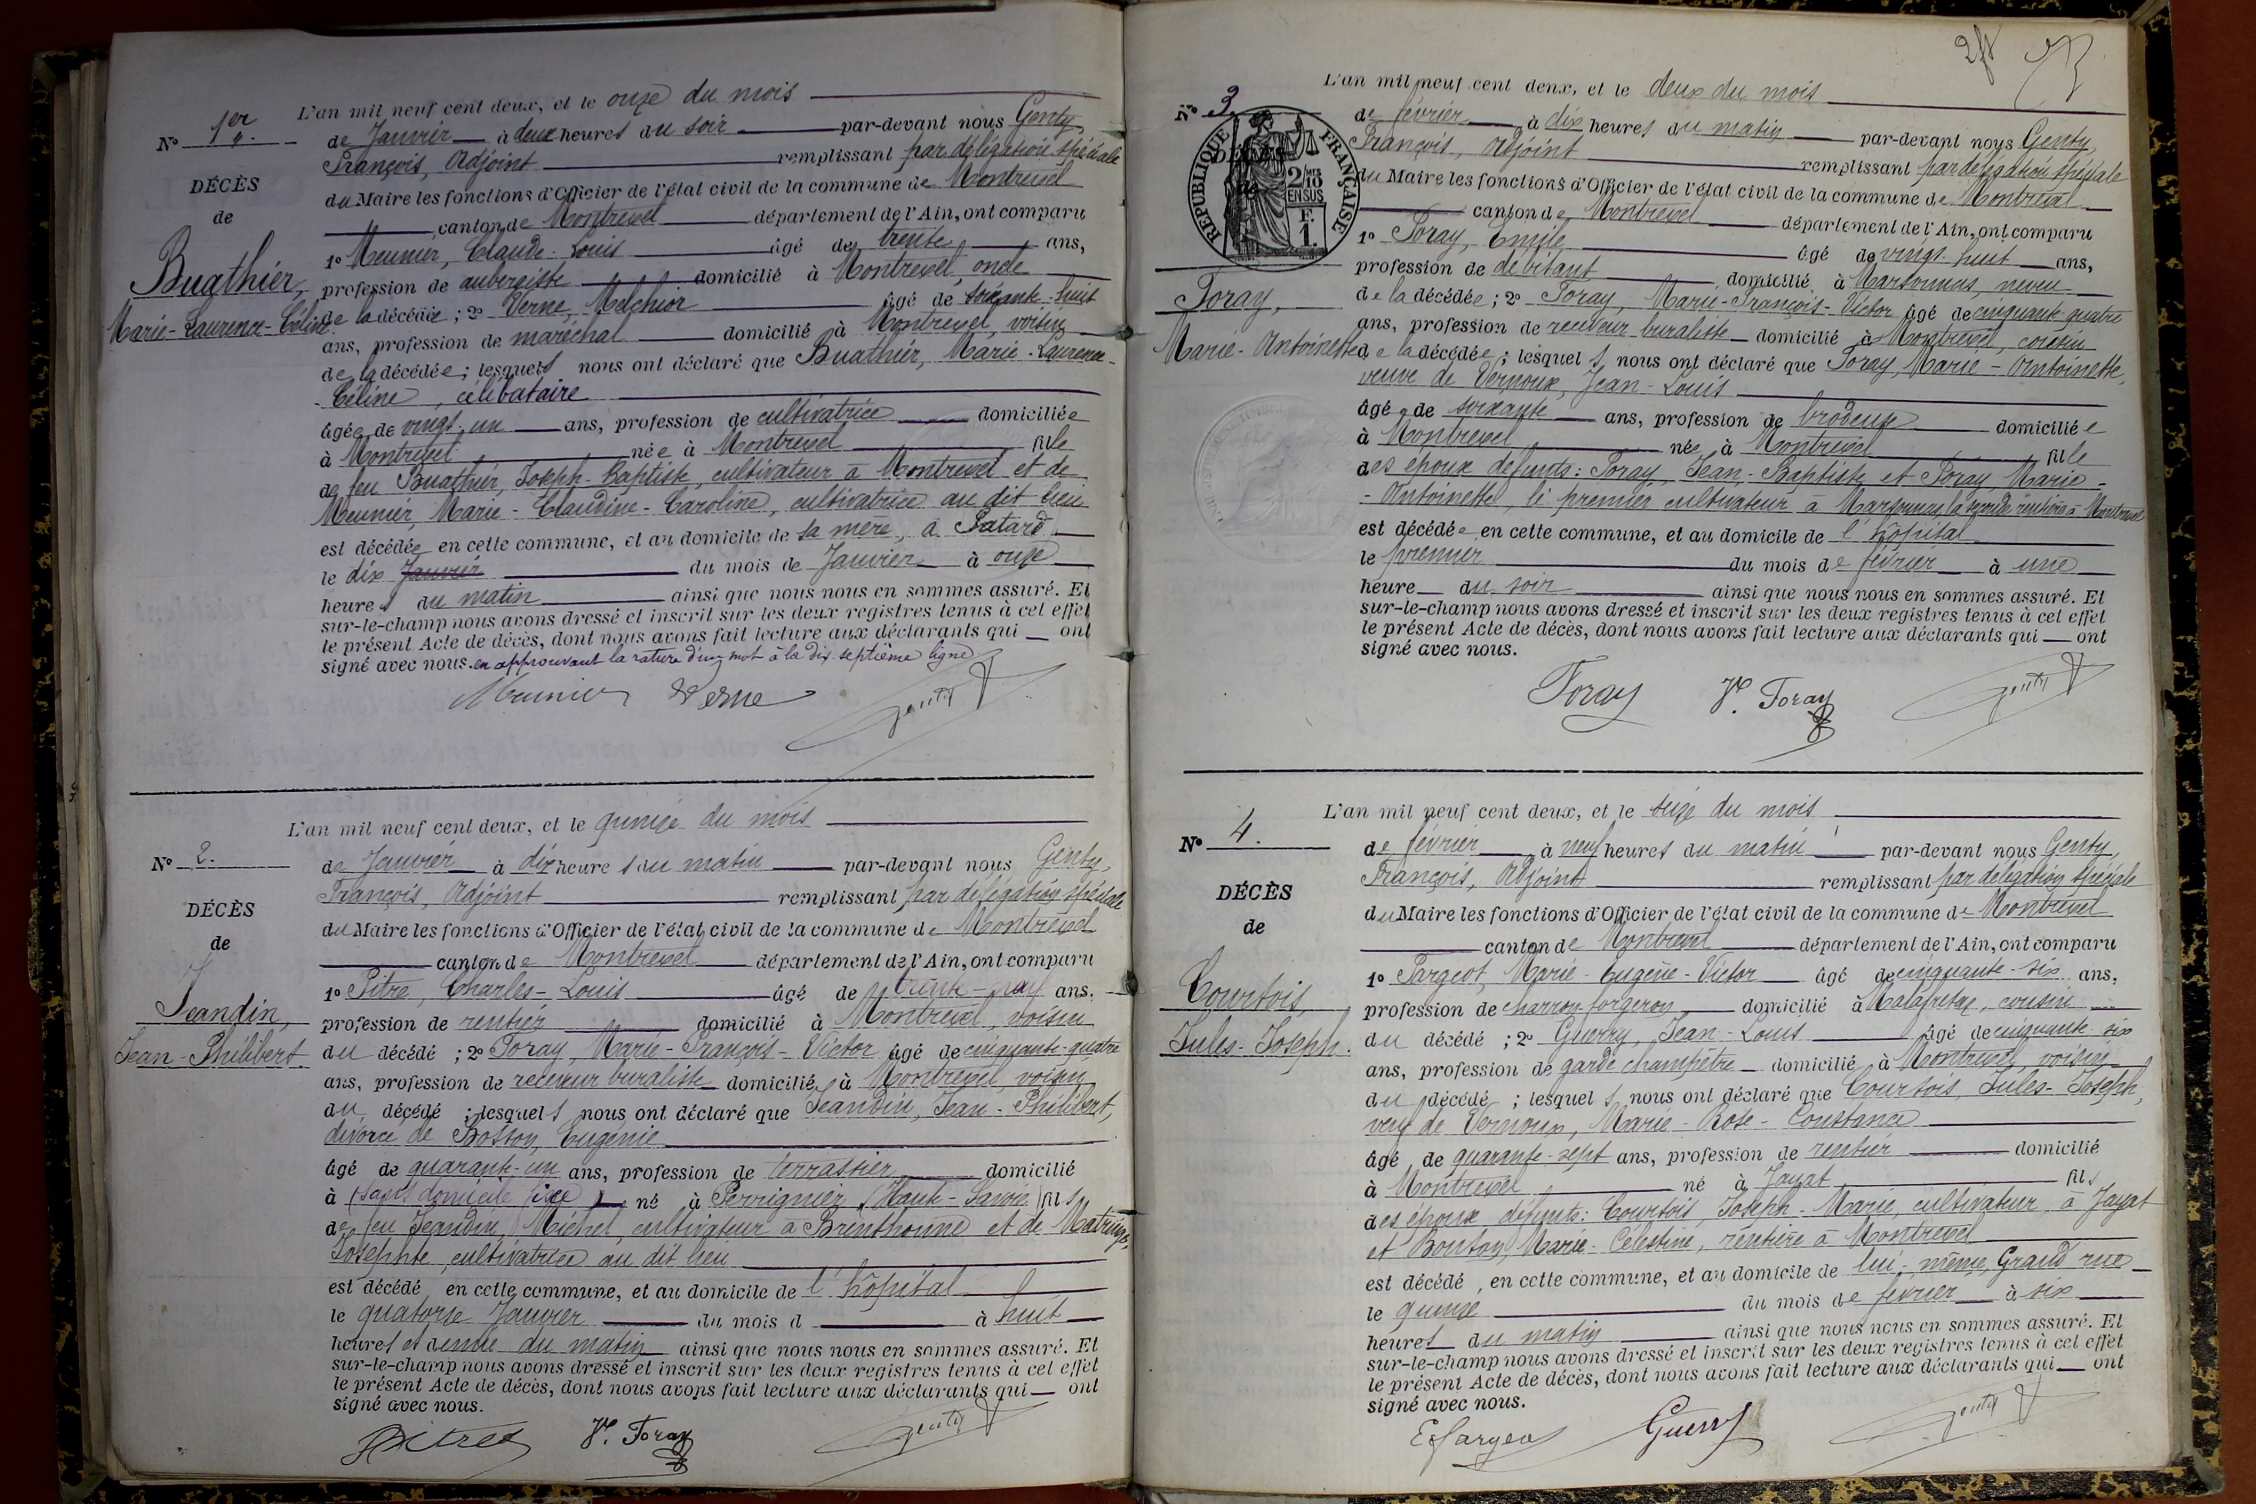 L'an mil neuf cent deux, et le onze du mois
N° 1er
de Janvier à deux heures du soir par-devant nous Genty,
François, Adjoint remplissant par délégation spéciale
DÉCÈS
du Maire les fonctions d'Officier de l'état civil de la commune de Montrevel
de
canton de Montrevel département de l'Ain, ont comparu
1° Meunier, Claude-Louis âgé de trente ans,
Buathier,
profession de aubergiste domicilié à Montrevel, oncle
Marie-Laurence-Céline
de la décédée ; 2° Verne, Melchior âgé de soixante-huit
ans, profession de maréchal domicilié à Montrevel, voisin
de la décédée ; lesquels nous ont déclaré que Buathier, Marie-Laurence-
-Céline, célibataire
âgée de vingt-un ans, profession de cultivatrice domiciliée
à Montrevel née à Montrevel fille
de feu Buathier, Joseph-Baptiste, cultivateur à Montrevel et de
Meunier, Marie-Claudine-Caroline, cultivatrice au dit lieu
est décédée en cette commune, et au domicile de sa mère, à Patard
le dix Janvier du mois de Janvier à onze
heures du matin ainsi que nous nous en sommes assuré. Et
sur-le-champ nous avons dressé et inscrit sur les deux registres tenus à cet effet
le présent Acte de décès, dont nous avons fait lecture aux déclarants qui ont
signé avec nous. en approuvant la rature d'un mot à la dix-septième ligne
Meunier Verne Genty
L'an mil neuf cent deux, et le quinze du mois
N° 2.
de Janvier à dix heures du matin par-devant nous Genty,
François, Adjoint remplissant par délégation spéciale
DÉCÈS
du Maire les fonctions d'Officier de l'état civil de la commune de Montrevel
de
canton de Montrevel département de l'Ain, ont comparu
1° Pitre, Charles-Louis âgé de ans,
Jeandin,
profession de rentier domicilié à Montrevel, voisin
Jean-Philibert.
du décédé ; 2° Foray, Marie-François-Victor âgé de cinquante-quatre
ans, profession de receveur buraliste domicilié à Montrevel, voisin
du décédé ; lesquels nous ont déclaré que Jeandin, Jean-Philibert,
divorcé de Bosson, Eugénie
âgé de quarante-un ans, profession de terrassier domicilié
à (sans domicile fixe) né à Perrignier, (Haute-Savoie) fils
de feu Jeandin, Michel, cultivateur à Brenthonne et de Matringe,
Josephte, cultivatrice au dit lieu
est décédé en cette commune, et au domicile de l'hôpital
le quatorze Janvier du mois d à huit
heures et demie du matin ainsi que nous nous en sommes assuré. Et
sur-le-champ nous avons dressé et inscrit sur les deux registres tenus à cet effet
le présent Acte de décès, dont nous avons fait lecture aux déclarants qui ont
signé avec nous.
Pitre Vr. Foray Genty
L'an mil neuf cent deux, et le deux du mois
N° 3.
de février à dix heures du matin par-devant nous Genty,
François, Adjoint remplissant par délégation spéciale
DÉCÈS
de
RÉPUBLIQUE FRANÇAISE
2/10 MES
EN SUS
F.
1.
du Maire les fonctions d'Officier de l'état civil de la commune de Montrevel
canton de Montrevel département de l'Ain, ont comparu
1° Foray, Emile âgé de vingt-huit ans,
profession de débitant domicilié à Marsonnas, neveu
Foray,
de la décédée ; 2° Foray, Marie-François-Victor âgé de cinquante-quatre
ans, profession de receveur buraliste domicilié à Montrevel, cousin
Marie-Antoinette
de la décédée ; lesquels nous ont déclaré que Foray, Marie-Antoinette,
veuve de Vernoux, Jean-Louis
âgé de soixante ans, profession de brodeuse domiciliée
à Montrevel née à Montrevel fille
des époux défunts : Foray, Jean-Baptiste et Foray, Marie-
-Antoinette, le premier cultivateur à Marsonnas la seconde rentière à Montrevel
est décédée en cette commune, et au domicile de l'hôpital
le premier du mois de février à une
heure du soir ainsi que nous nous en sommes assuré. Et
sur-le-champ nous avons dressé et inscrit sur les deux registres tenus à cet effet
le présent Acte de décès, dont nous avons fait lecture aux déclarants qui ont
signé avec nous.
Foray Vr. Foray Genty
L'an mil neuf cent deux, et le seize du mois
N° 4.
de février à neuf heures du matin par-devant nous Genty,
François, Adjoint remplissant par délégation spéciale
DÉCÈS
du Maire les fonctions d'Officier de l'état civil de la commune de Montrevel
de
canton de Montrevel département de l'Ain, ont comparu
1° Fargeot, Marie-Eugène-Victor âgé de cinquante-six ans,
Courtois,
profession de charron forgeron domicilié à Malafretaz, cousin
Jules-Joseph.
du décédé ; 2° Guerry, Jean-Louis âgé de cinquante-six
ans, profession de garde champêtre domicilié à Montrevel, voisin
du décédé ; lesquels nous ont déclaré que Courtois, Jules-Joseph,
veuf de Vernoux, Marie-Rose-Constance
âgé de quarante-sept ans, profession de rentier domicilié
à Montrevel né à Jayat fils
des époux défunts : Courtois, Joseph-Marie, cultivateur à Jayat
et Bouton, Marie-Célestine, rentière à Montrevel
est décédé, en cette commune, et au domicile de lui-même, Grand'rue
le quinze du mois de février à six
heures du matin ainsi que nous nous en sommes assuré. Et
sur-le-champ nous avons dressé et inscrit sur les deux registres tenus à cet effet
le présent Acte de décès, dont nous avons fait lecture aux déclarants qui ont
signé avec nous.
E Fargeot Guerry Genty